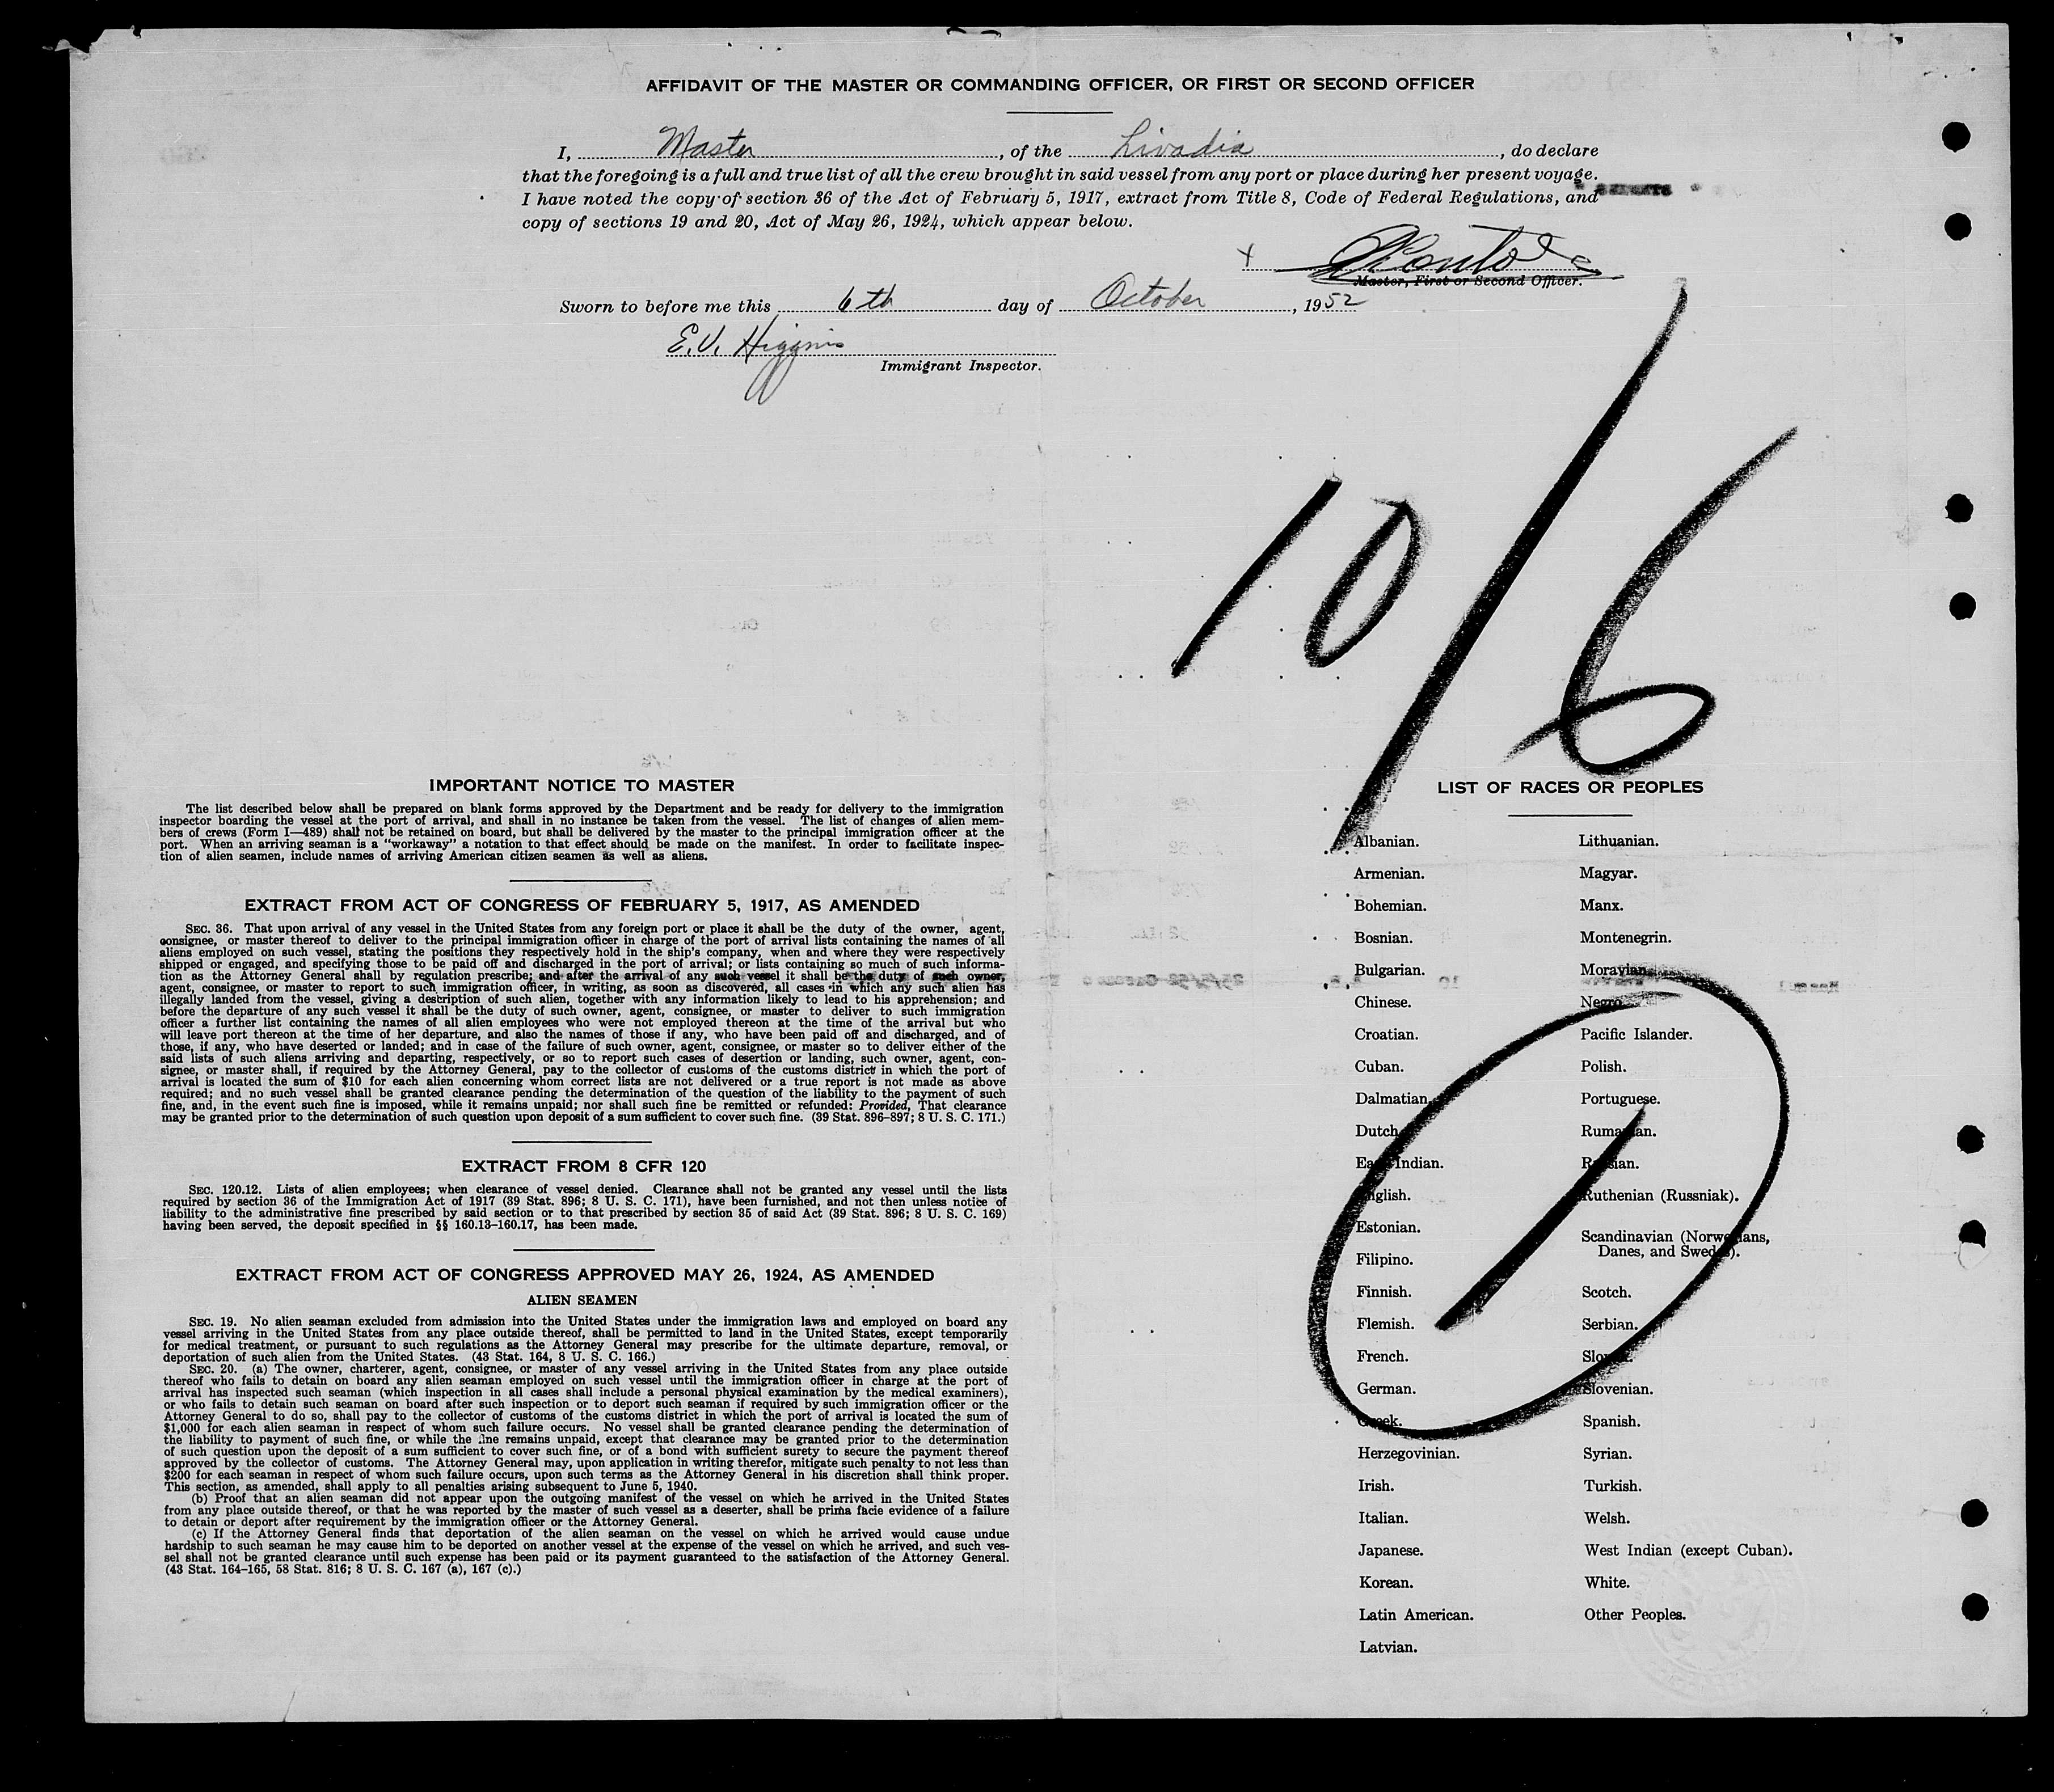 AFFIDAVIT OF THE MASTER OR COMMANDING OFFICER, OR FIRST OR SECOND OFFICER
I, Master, of the Livadia, do declare
that the foregoing is a full and true list of all the crew brought in said vessel from any port or place during her present voyage.
I have noted the copy of section 36 of the Act of February 5, 1917, extract from Title 8, Code of Federal Regulations, and
copy of sections 19 and 20, Act of May 26, 1924, which appear below.
x
Master, First or Second Officer.
Sworn to before me this 6th day of October, 1952
E.V. Higgins
Immigrant Inspector.
10/6
IMPORTANT NOTICE TO MASTER
The list described below shall be prepared on blank forms approved by the Department and be ready for delivery to the immigration
inspector boarding the vessel at the port of arrival, and shall in no instance be taken from the vessel. The list of changes of alien mem-
bers of crews (Form I—489) shall not be retained on board, but shall be delivered by the master to the principal immigration officer at the
port. When an arriving seaman is a "workaway" a notation to that effect should be made on the manifest. In order to facilitate inspec-
tion of alien seamen, include names of arriving American citizen seamen as well as aliens.
EXTRACT FROM ACT OF CONGRESS OF FEBRUARY 5, 1917, AS AMENDED
SEC. 36. That upon arrival of any vessel in the United States from any foreign port or place it shall be the duty of the owner, agent,
consignee, or master thereof to deliver to the principal immigration officer in charge of the port of arrival lists containing the names of all
aliens employed on such vessel, stating the positions they respectively hold in the ship's company, when and where they were respectively
shipped or engaged, and specifying those to be paid off and discharged in the port of arrival; or lists containing so much of such informa-
tion as the Attorney General shall by regulation prescribe; and after the arrival of any such vessel it shall be the duty of such owner,
agent, consignee, or master to report to such immigration officer, in writing, as soon as discovered, all cases in which any such alien has
illegally landed from the vessel, giving a description of such alien, together with any information likely to lead to his apprehension; and
before the departure of any such vessel it shall be the duty of such owner, agent, consignee, or master to deliver to such immigration
officer a further list containing the names of all alien employees who were not employed thereon at the time of the arrival but who
will leave port thereon at the time of her departure, and also the names of those if any, who have been paid off and discharged, and of
those, if any, who have deserted or landed; and in case of the failure of such owner, agent, consignee, or master so to deliver either of the
said lists of such aliens arriving and departing, respectively, or so to report such cases of desertion or landing, such owner, agent, con-
signee, or master shall, if required by the Attorney General, pay to the collector of customs of the customs district in which the port of
arrival is located the sum of $10 for each alien concerning whom correct lists are not delivered or a true report is not made as above
required; and no such vessel shall be granted clearance pending the determination of the question of the liability to the payment of such
fine, and, in the event such fine is imposed, while it remains unpaid; nor shall such fine be remitted or refunded: Provided, That clearance
may be granted prior to the determination of such question upon deposit of a sum sufficient to cover such fine. (39 Stat. 896–897; 8 U. S. C. 171.)
EXTRACT FROM 8 CFR 120
SEC. 120.12. Lists of alien employees; when clearance of vessel denied. Clearance shall not be granted any vessel until the lists
required by section 36 of the Immigration Act of 1917 (39 Stat. 896; 8 U. S. C. 171), have been furnished, and not then unless notice of
liability to the administrative fine prescribed by said section or to that prescribed by section 35 of said Act (39 Stat. 896; 8 U. S. C. 169)
having been served, the deposit specified in §§ 160.13–160.17, has been made.
EXTRACT FROM ACT OF CONGRESS APPROVED MAY 26, 1924, AS AMENDED
ALIEN SEAMEN
SEC. 19. No alien seaman excluded from admission into the United States under the immigration laws and employed on board any
vessel arriving in the United States from any place outside thereof, shall be permitted to land in the United States, except temporarily
for medical treatment, or pursuant to such regulations as the Attorney General may prescribe for the ultimate departure, removal, or
deportation of such alien from the United States. (43 Stat. 164, 8 U. S. C. 166.)
SEC. 20. (a) The owner, charterer, agent, consignee, or master of any vessel arriving in the United States from any place outside
thereof who fails to detain on board any alien seaman employed on such vessel until the immigration officer in charge at the port of
arrival has inspected such seaman (which inspection in all cases shall include a personal physical examination by the medical examiners),
or who fails to detain such seaman on board after such inspection or to deport such seaman if required by such immigration officer or the
Attorney General to do so, shall pay to the collector of customs of the customs district in which the port of arrival is located the sum of
$1,000 for each alien seaman in respect of whom such failure occurs. No vessel shall be granted clearance pending the determination of
the liability to payment of such fine, or while the fine remains unpaid, except that clearance may be granted prior to the determination
of such question upon the deposit of a sum sufficient to cover such fine, or of a bond with sufficient surety to secure the payment thereof
approved by the collector of customs. The Attorney General may, upon application in writing therefor, mitigate such penalty to not less than
$200 for each seaman in respect of whom such failure occurs, upon such terms as the Attorney General in his discretion shall think proper.
This section, as amended, shall apply to all penalties arising subsequent to June 5, 1940.
(b) Proof that an alien seaman did not appear upon the outgoing manifest of the vessel on which he arrived in the United States
from any place outside thereof, or that he was reported by the master of such vessel as a deserter, shall be prima facie evidence of a failure
to detain or deport after requirement by the immigration officer or the Attorney General.
(c) If the Attorney General finds that deportation of the alien seaman on the vessel on which he arrived would cause undue
hardship to such seaman he may cause him to be deported on another vessel at the expense of the vessel on which he arrived, and such ves-
sel shall not be granted clearance until such expense has been paid or its payment guaranteed to the satisfaction of the Attorney General.
(43 Stat. 164–165, 58 Stat. 816; 8 U. S. C. 167 (a), 167 (c).)
LIST OF RACES OR PEOPLES
Albanian.
Armenian.
Bohemian.
Bosnian.
Bulgarian.
Chinese.
Croatian.
Cuban.
Dalmatian.
Dutch.
East Indian.
English.
Estonian.
Filipino.
Finnish.
Flemish.
French.
German.
Greek.
Herzegovinian.
Irish.
Italian.
Japanese.
Korean.
Latin American.
Latvian.
Lithuanian.
Magyar.
Manx.
Montenegrin.
Moravian.
Negro.
Pacific Islander.
Polish.
Portuguese.
Rumanian.
Russian.
Ruthenian (Russniak).
Scandinavian (Norwegians,
Danes, and Swedes).
Scotch.
Serbian.
Slovak.
Slovenian.
Spanish.
Syrian.
Turkish.
Welsh.
West Indian (except Cuban).
White.
Other Peoples.
1